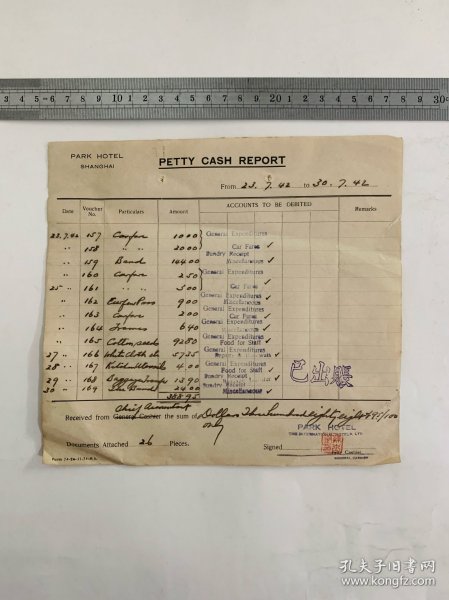 3 4 5 6 7 8 9 10 1 2 3 4 5 6 7 8 9 20 1 2 3 4 5 6 7 8 9 30
PARK HOTEL
SHANGHAI
PETTY CASH REPORT
From 23.7.42 to 30.7.42
Date Voucher No. Particulars Amount ACCOUNTS TO BE DEBITED Remarks
23.7.42 157 Carfare 1000 General Expenditures
" 158 " " 2000 Car Fares
" 159 Band 14400 Sundry Receipt Miscellaneous
" 160 Carfare 250 General Expenditures
25 " 161 " " 500 Car Fares
" 162 900 General Expenditures Miscellaneous
" 163 Carfare 200 General Expenditures Car Fares
" 164 Frames 640 General Expenditures Miscellaneous
" 165 9280 General Expenditures Food for Staff
27 " 166 5735 General Expenditures
28 " 167 4.00 General Expenditures Food for Staff
29 " 168 1590 General Expenditures Miscellaneous
30 " 169 The Band 2400 Sundry Receipt Miscellaneous
38895
已出賬
Chief Accountant
Received from General Cashier the sum of Dollars Three Hundred eighty eight & 95/100
only
PARK HOTEL
Documents Attached 26 Pieces.
Signed
孔夫子旧书网
www.kongfz.com